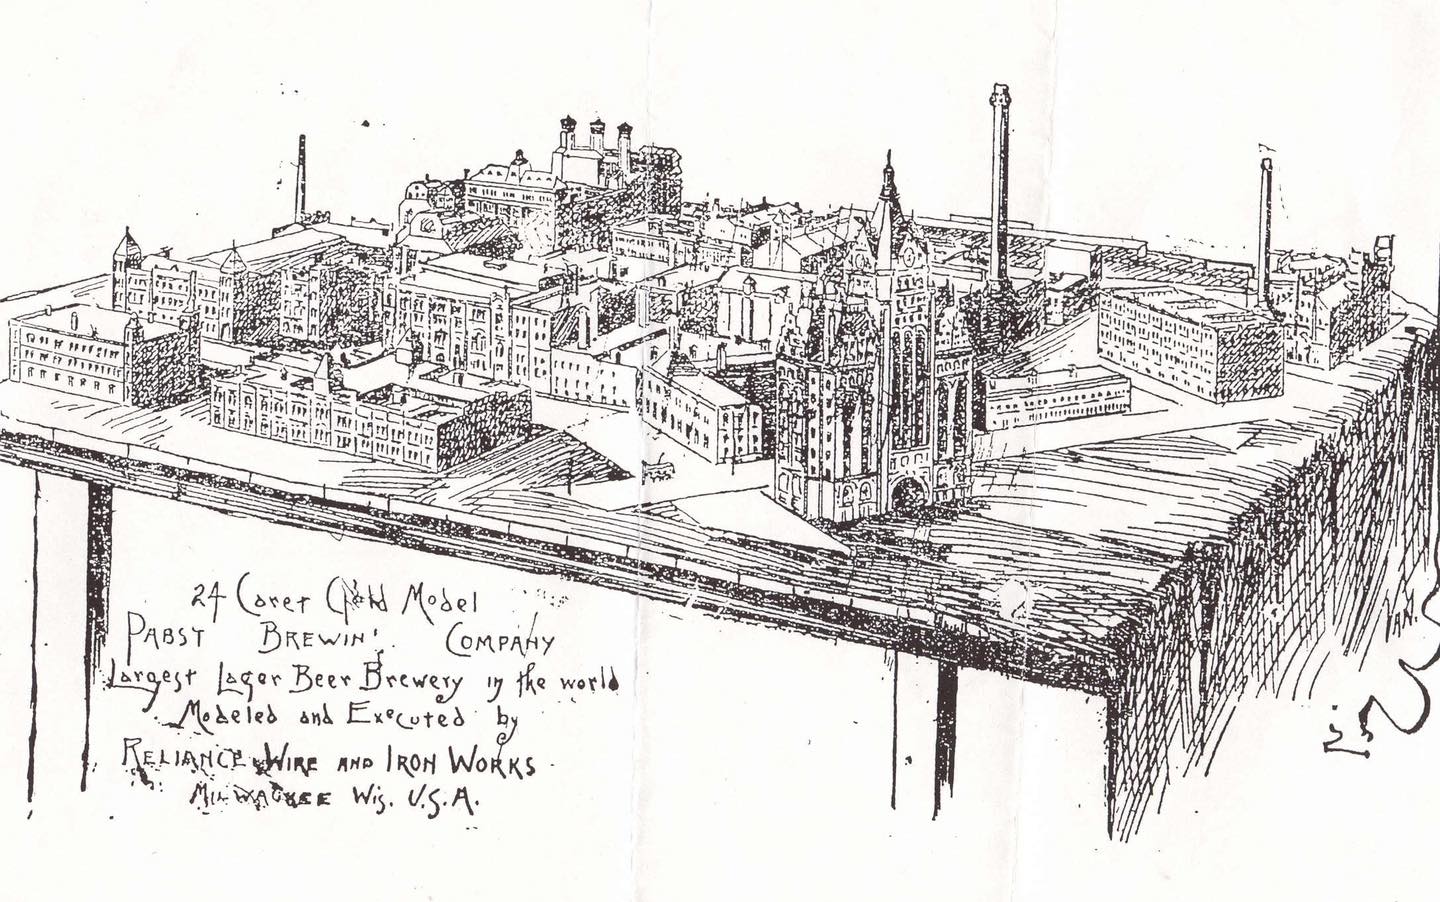 24 Caret Gold Model
PABST BREWIN'. COMPANY
Largest Lager Beer Brewery in the world
Modeled and Executed by
RELIANCE WIRE AND IRON WORKS
MILWAUKEE Wis. U.S.A.